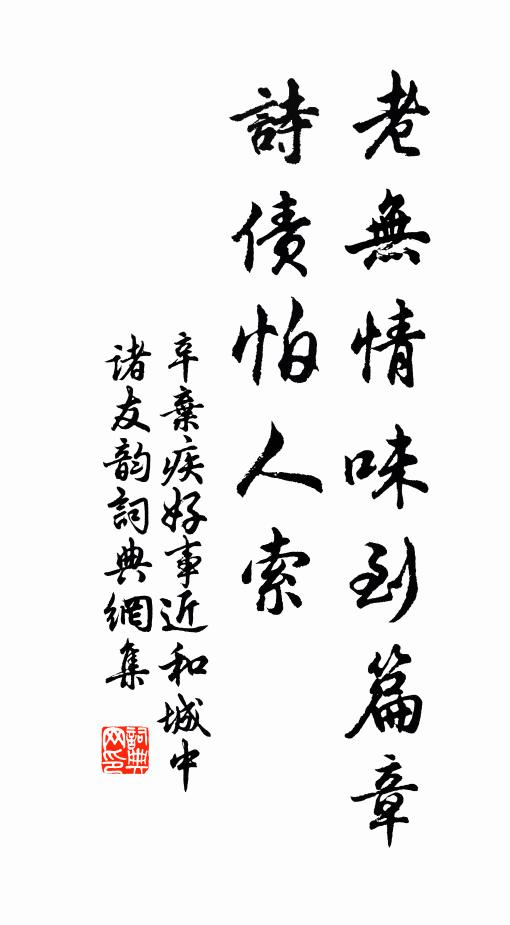 老無情味到篇章
詩債怕人索
辛棄疾好事近和城中
诸友韵詞典網集
詞典
网印